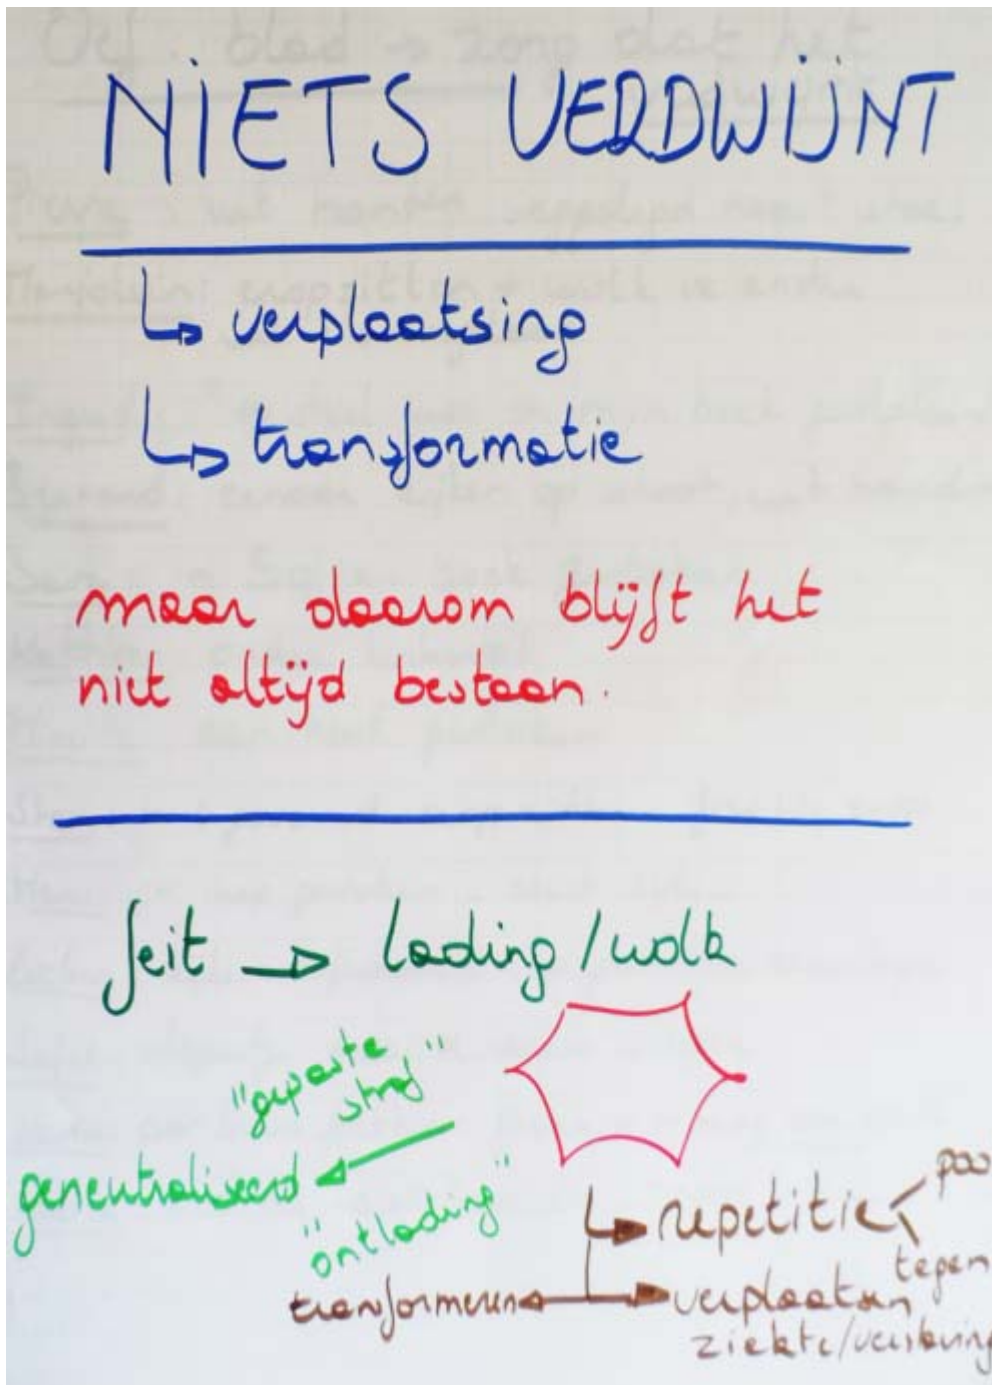 NIETS VERDWIJNT
verplaatsing
transformatie
maar daarom blijft het
niet altijd bestaan.
feit → lading / wolk
"gepaste
straf"
geneutraliseerd
"ontlading"
repetitie
tegen
transformeren
verplaatsen
ziekte/verslaving